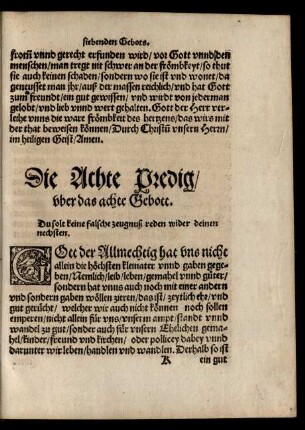 siebenden Gebots.
from̃ vnnd gerecht erfunden wird/ vor Gott vnnd den
menschen/ man tregt nit schwer an der frömbkeyt/ so thut
sie auch keinen schaden/ sondern wo sie ist vnd wonet/ da
geneusset man jhr/ auß der massen reichlich/ vnd hat Gott
zum freundt/ ein gut gewissen/ vnd würdt von jederman
gelobt/ vnd lieb vnnd wert gehalten. Gott der Herr ver-
leihe vnns die ware frömbkeit des hertzens/ das wirs mit
der that beweisen können/ Durch Christũ vnsern Herrn/
im heiligen Geist/ Amen.
Die Achte Predig/
vber das achte Gebott.
Du solt keine falsche zeugnuß reden wider deinen
nechsten.
GOtt der Allmechtig hat vns nicht
allein die höchsten kleinater vnnd gaben gege-
ben/ Nemlich/ leib/ leben/ gemahel vnnd güter/
sondern hat vnns auch noch mit einer andern
vnd sondern gaben wöllen zieren/ das ist/ zeytlich ehr/ vnd
gut gerücht/ welcher wir auch nicht können noch sollen
emperen/ nicht allein für vns/ vnserm ampt/ standt vnnd
wandel zu gut/ sonder auch für vnsern Ehelichen gema-
hel/ kinder/ freund vnd kirchen/ oder pollicey dabey vnnd
darunter wir leben/ handlen vnd wandlen. Derhalb so ist
K ein gut